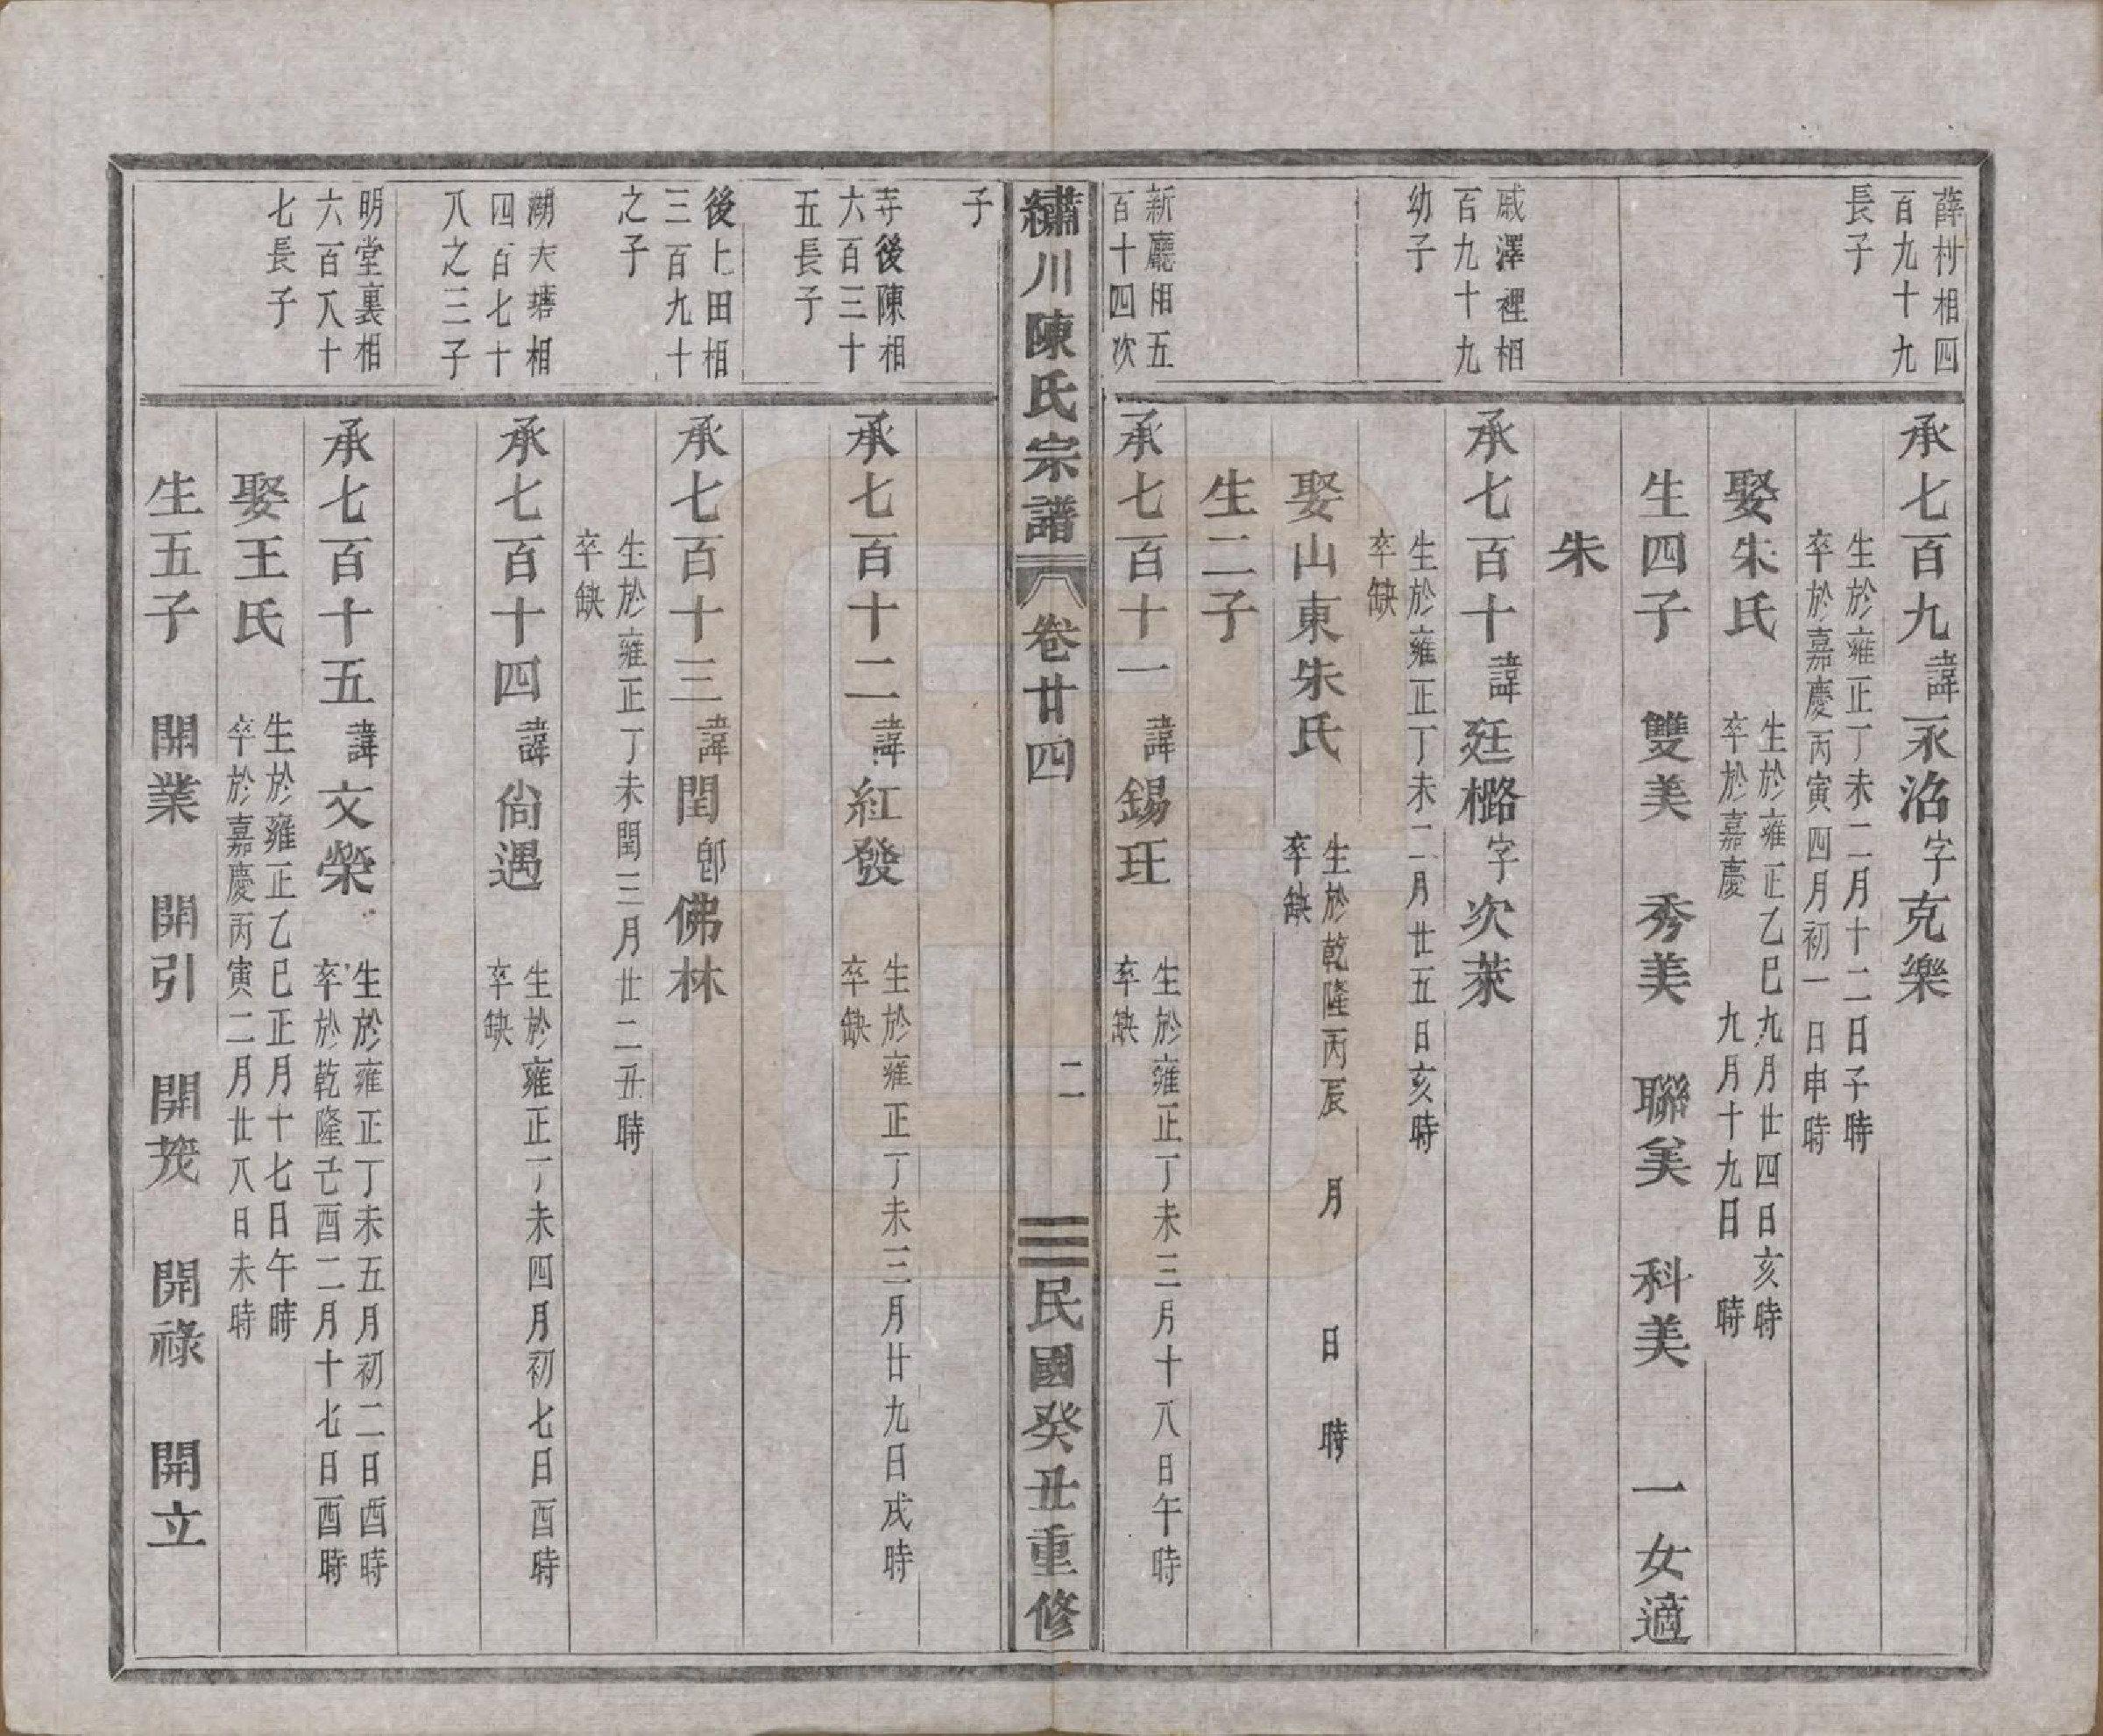 薛村相四
百九十九
長子
承七百九諱永治字克樂
生於雍正丁未二月十二日子時
卒於嘉慶丙寅四月初一日申時
娶朱氏
生於雍正乙巳九月廿四日亥時
卒於嘉慶 九月十九日 時
生四子 雙美 秀美 聯美 科美 一女適
朱
戚澤裡相
百九十九
幼子
承七百十諱廷櫓字次萊
生於雍正丁未二月廿五日亥時
卒缺
娶山東朱氏
生於乾隆丙辰 月 日 時
卒缺
生二子
新廳相五
百十四次
承七百十一諱錫玨
生於雍正丁未三月十八日午時
卒缺
繡川陳氏宗譜 卷廿四 二 民國癸丑重修
子
寺後陳相
六百三十
五長子
承七百十二諱紅發
生於雍正丁未三月廿九日戌時
卒缺
後上田相
三百九十
之子
承七百十三諱閏郎佛林
生於雍正丁未閏三月廿二丑時
卒缺
湖大塘相
四百七十
八之三子
承七百十四諱尙遇
生於雍正丁未四月初七日酉時
卒缺
明堂裏相
六百八十
七長子
承七百十五諱文榮
生於雍正丁未五月初二日酉時
卒於乾隆己酉二月十七日酉時
娶王氏
生於雍正乙巳正月十七日午時
卒於嘉慶丙寅二月廿八日未時
生五子 開業 開引 開茂 開祿 開立